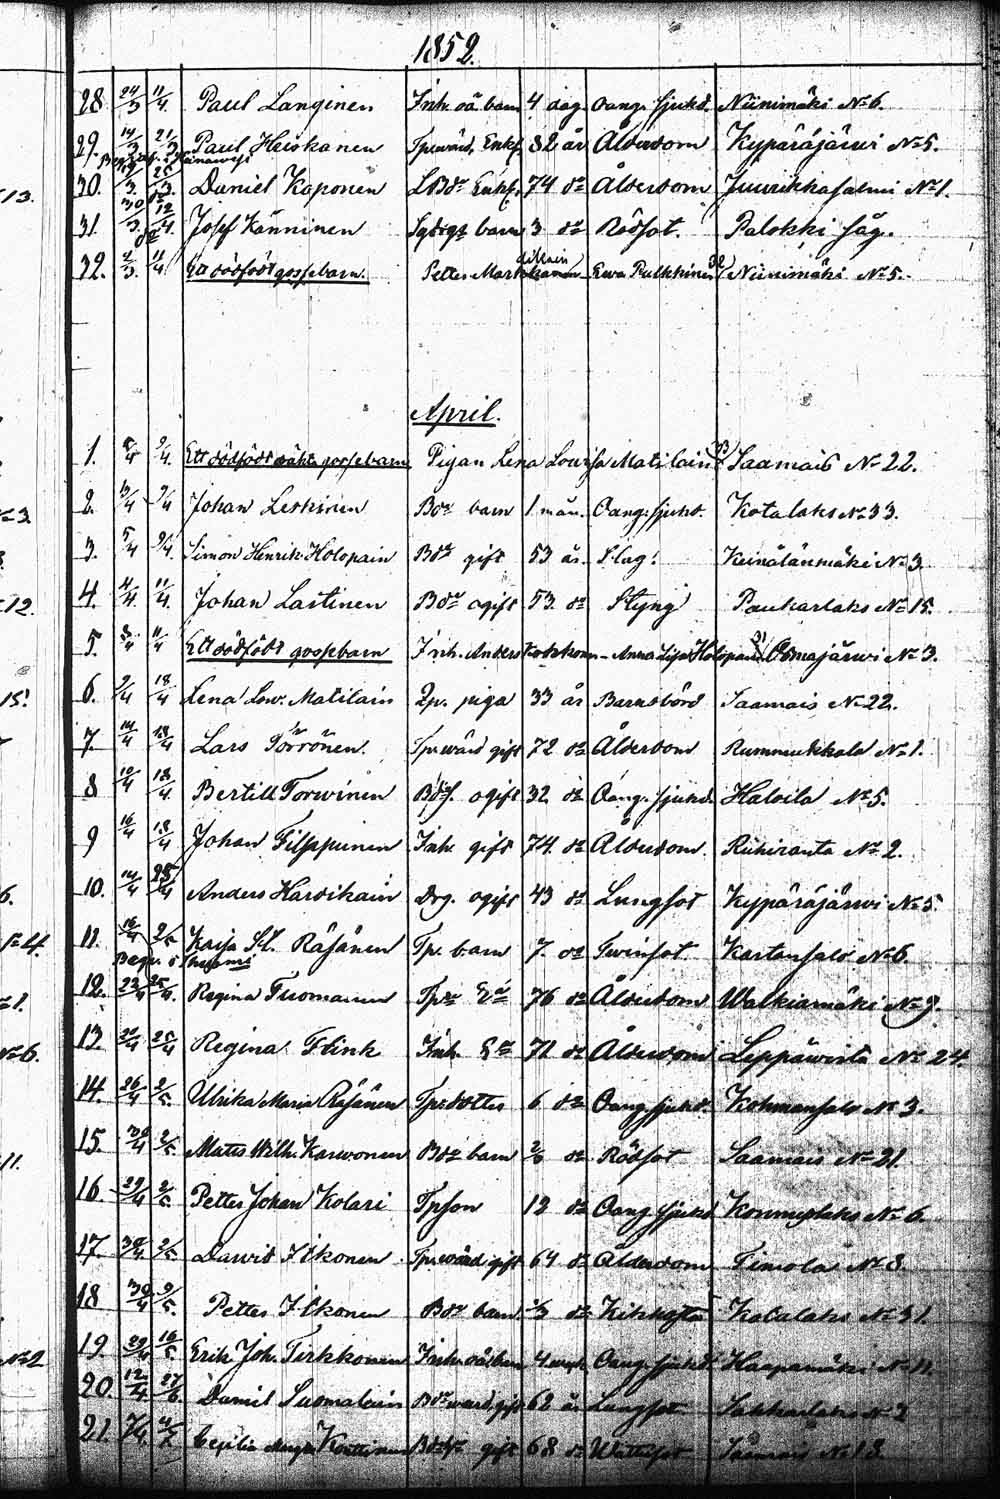 1852.
28. 24/3 11/4. Paul Langinen Inh. oä. barn 4 dag. Oang. sjukd. Niinimäki No 6.
29. 14/3 21/3 Paul Heiskanen Tp.wärd, Enkl. 82 år Ålderdom Kypäräjärwi No 5.
30. Daniel Koponen Enkl. 74 do Ålderdom Juurikkasalmi No 1.
31. 30/3 12/4. Josef Känninen barn 3 do Rödsot. Palokki såg.
32. Ett dödfödt gossebarn. Petter Markkanen Ewa Pulkkinen 32 Niinimäki No 5.
April.
1. 9/4. Ett dödfödt oäkta gossebarn Pigan Lena Lowisa Matilain 33 Saamais No 22.
2. 9/4 Johan Leskinen Bdr barn 1 mån. Oang. sjukd. Kotalaks No 33.
3. 5/4 9/4. Simon Henrik Holopain Bdr gift 53 år. Slag. Keinälänmäki No 3.
4. 4/4. 11/4. Johan Lastinen Bdr ogift 53. do Styng Paukarlaks No 15.
5. 11/4 Ett dödfödt gossebarn Inh. Anders Anna Lisa Holopain 31 Osmajärwi No 3.
6. 9/4 18/4 Lena Low. Matilain Tp. piga 33 år Barnsbörd Saamais No 22.
7. 14/4 18/4 Lars Pörrönen. Tp.wärd gift 72 do Ålderdom Rummukkala No 1.
8 10/4 18/4. Bertill Torwinen ogift 32 do Oang. sjukd. Haloila No 5.
9 16/4 18/4 Johan Filppunen Inh. gift 74. do Ålderdom. Riihiranta No 2.
10. 14/4 25/4 Anders Hardikain Drg. ogift 43 do Lungsot Kypäräjärwi No 5.
11. 16/4 2/5 Kaisa St. Räsänen Tp. barn 7. do Twinsot Kartansalo No 6.
12. 23/4 25/4. Regina Tuomainen Tpr Ea 76 do Ålderdom Walkiamäki No 9.
13. 25/4 Regina Flink Inh. Ea 71 do Ålderdom Leppäwirta No 24.
14. 26/4 2/5. Ulrika Maria Räsänen Tp. dotter 6 do Oang. sjukd. Kohmansalo No 3.
15. 2/5 Matts Wilh. Karwonen Bdr barn do Rödsot Saamais No 21.
16. 29/4 2/5 Petter Johan Kolari Tpson 12 do Oang. sjukd. Konnuslaks No 6.
17. 30/4 2/5 Dawid Ikonen Tp.wärd gift 64 do Ålderdom Timola No 3.
18 30/4 9/5. Petter Ikonen Bdr barn. do Kikhosta Kotalaks No 31.
19. 29/4 16/5 Erik Joh. Tirkkonen Inh. oä. barn Oang. sjukd. Haapamäki No 11.
20. 12/4. 27/6. Daniel Suomalain gift 62 år Lungsot No 2
21. Cecilia gift 68 do Wattusot Saamais No 13.